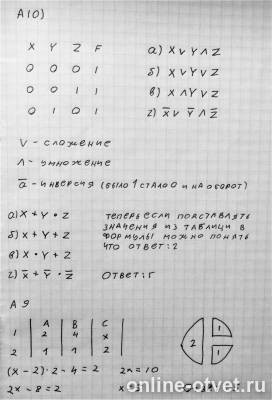 А10)
X Y Z F
0 0 0 1
0 0 1 1
0 1 0 1
а) X v Y ʌ Z
б) X v Y v Z
в) X ʌ Y v Z
г) X̅ v Y̅ ʌ Z̅
V - сложение
Λ - умножение
a̅ - инверсия (было 1 стало 0 и наоборот)
а) X + Y • Z
б) X + Y + Z
в) X • Y + Z
г) X̅ + Y̅ • Z̅
теперь если подставлять
значения из таблици в
формулы можно понять
что ответ: г
Ответ: г
А9
A B C
1 2 4 x
2 1 1 2
2 1 1
(x - 2) • 2 - 4 = 2
2x - 8 = 2
2x = 10
online-otvet.ru